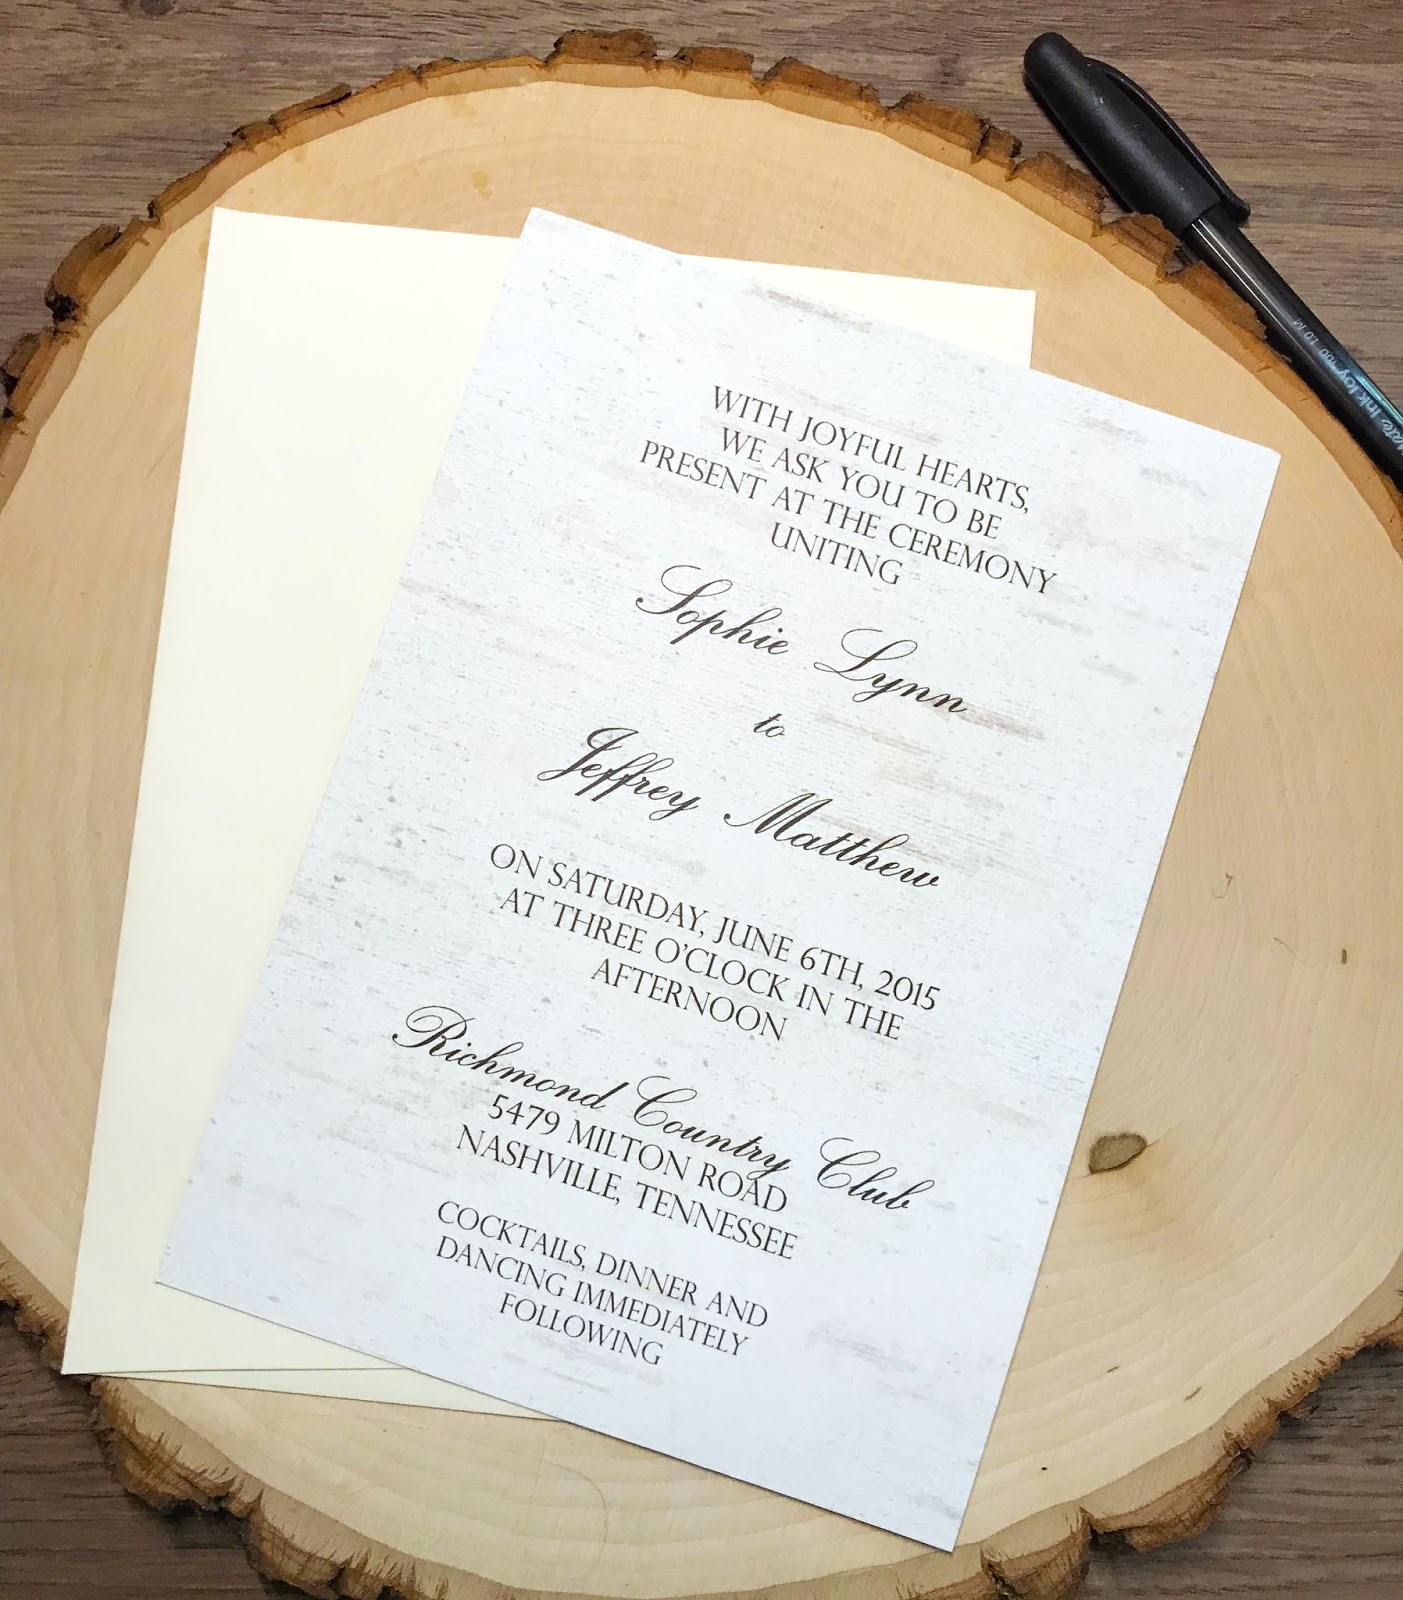 WITH JOYFUL HEARTS,
WE ASK YOU TO BE
PRESENT AT THE CEREMONY
UNITING
Sophie Lynn
to
Jeffrey Matthew
ON SATURDAY, JUNE 6TH, 2015
AT THREE O'CLOCK IN THE
AFTERNOON
Richmond Country Club
5479 MILTON ROAD
NASHVILLE, TENNESSEE
COCKTAILS, DINNER AND
DANCING IMMEDIATELY
FOLLOWING
InkJoy 700 1.0 M